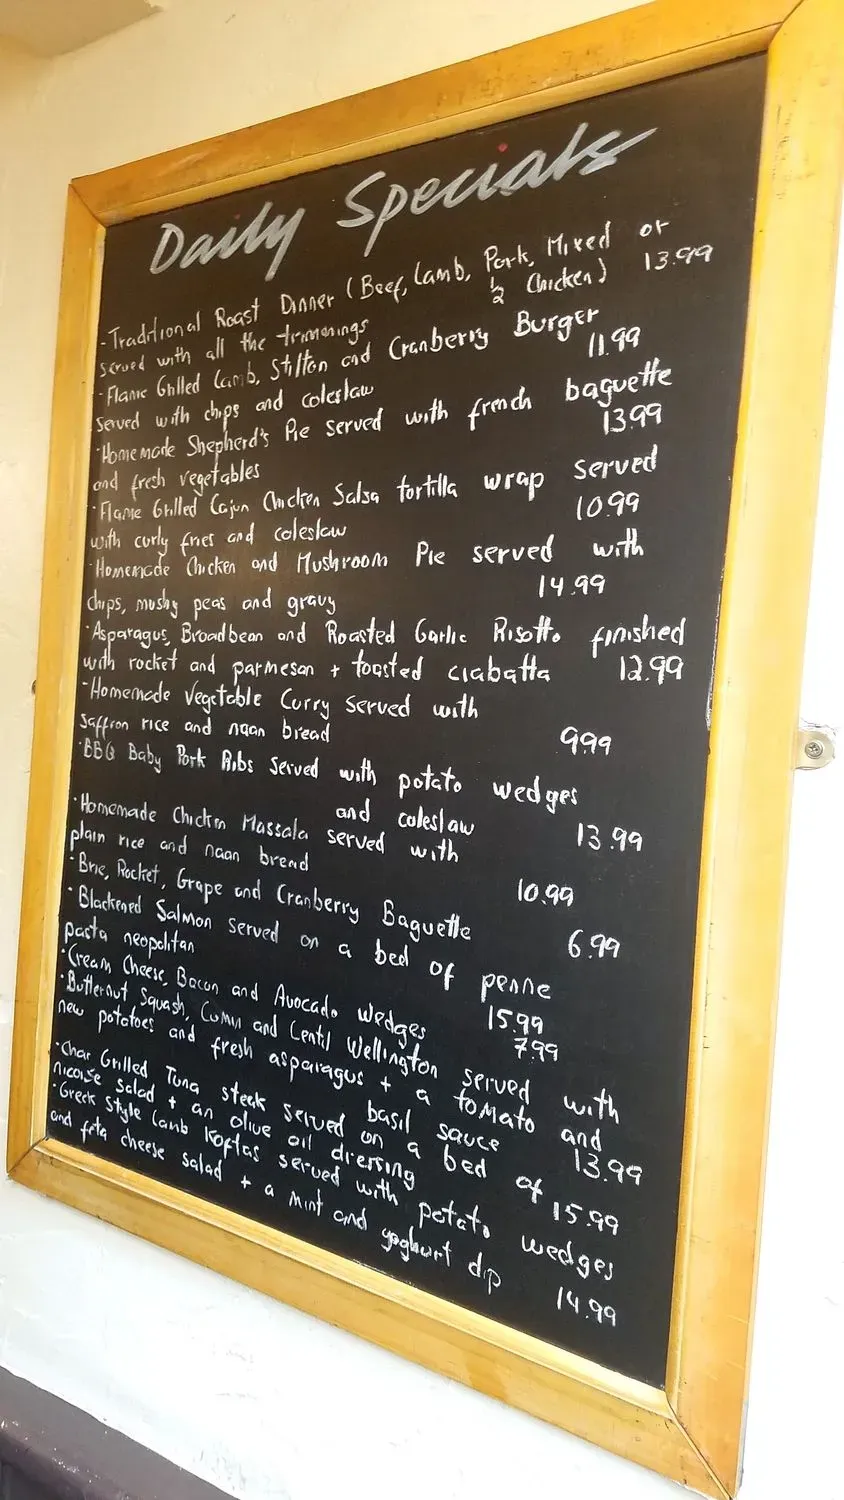 Daily Specials
- Traditional Roast Dinner (Beef, Lamb, Pork, Mixed or
served with all the trimmings ½ Chicken) 13.99
· Flame Grilled Lamb, Stilton and Cranberry Burger
served with chips and coleslaw 11.99
· Homemade Shepherd's Pie served with french baguette
and fresh vegetables 13.99
· Flame Grilled Cajun Chicken Salsa tortilla wrap served
with curly fries and coleslaw 10.99
· Homemade Chicken and Mushroom Pie served with
chips, mushy peas and gravy 14.99
· Asparagus, Broadbean and Roasted Garlic Risotto finished
with rocket and parmesan + toasted ciabatta 12.99
· Homemade Vegetable Curry served with
saffron rice and naan bread 9.99
· BBQ Baby Pork Ribs served with potato wedges
and coleslaw 13.99
· Homemade Chicken Massala served with
plain rice and naan bread 10.99
· Brie, Rocket, Grape and Cranberry Baguette 6.99
· Blackened Salmon served on a bed of penne
pasta neopolitan 15.99
· Cream Cheese, Bacon and Avocado wedges 7.99
· Butternut Squash, Cumin and Lentil Wellington served with
new potatoes and fresh asparagus + a tomato and
basil sauce 13.99
· Char Grilled Tuna steak served on a bed of
nicoise salad + an olive oil dressing 15.99
· Greek style Lamb Koftas served with potato wedges
and feta cheese salad + a mint and yoghurt dip 14.99